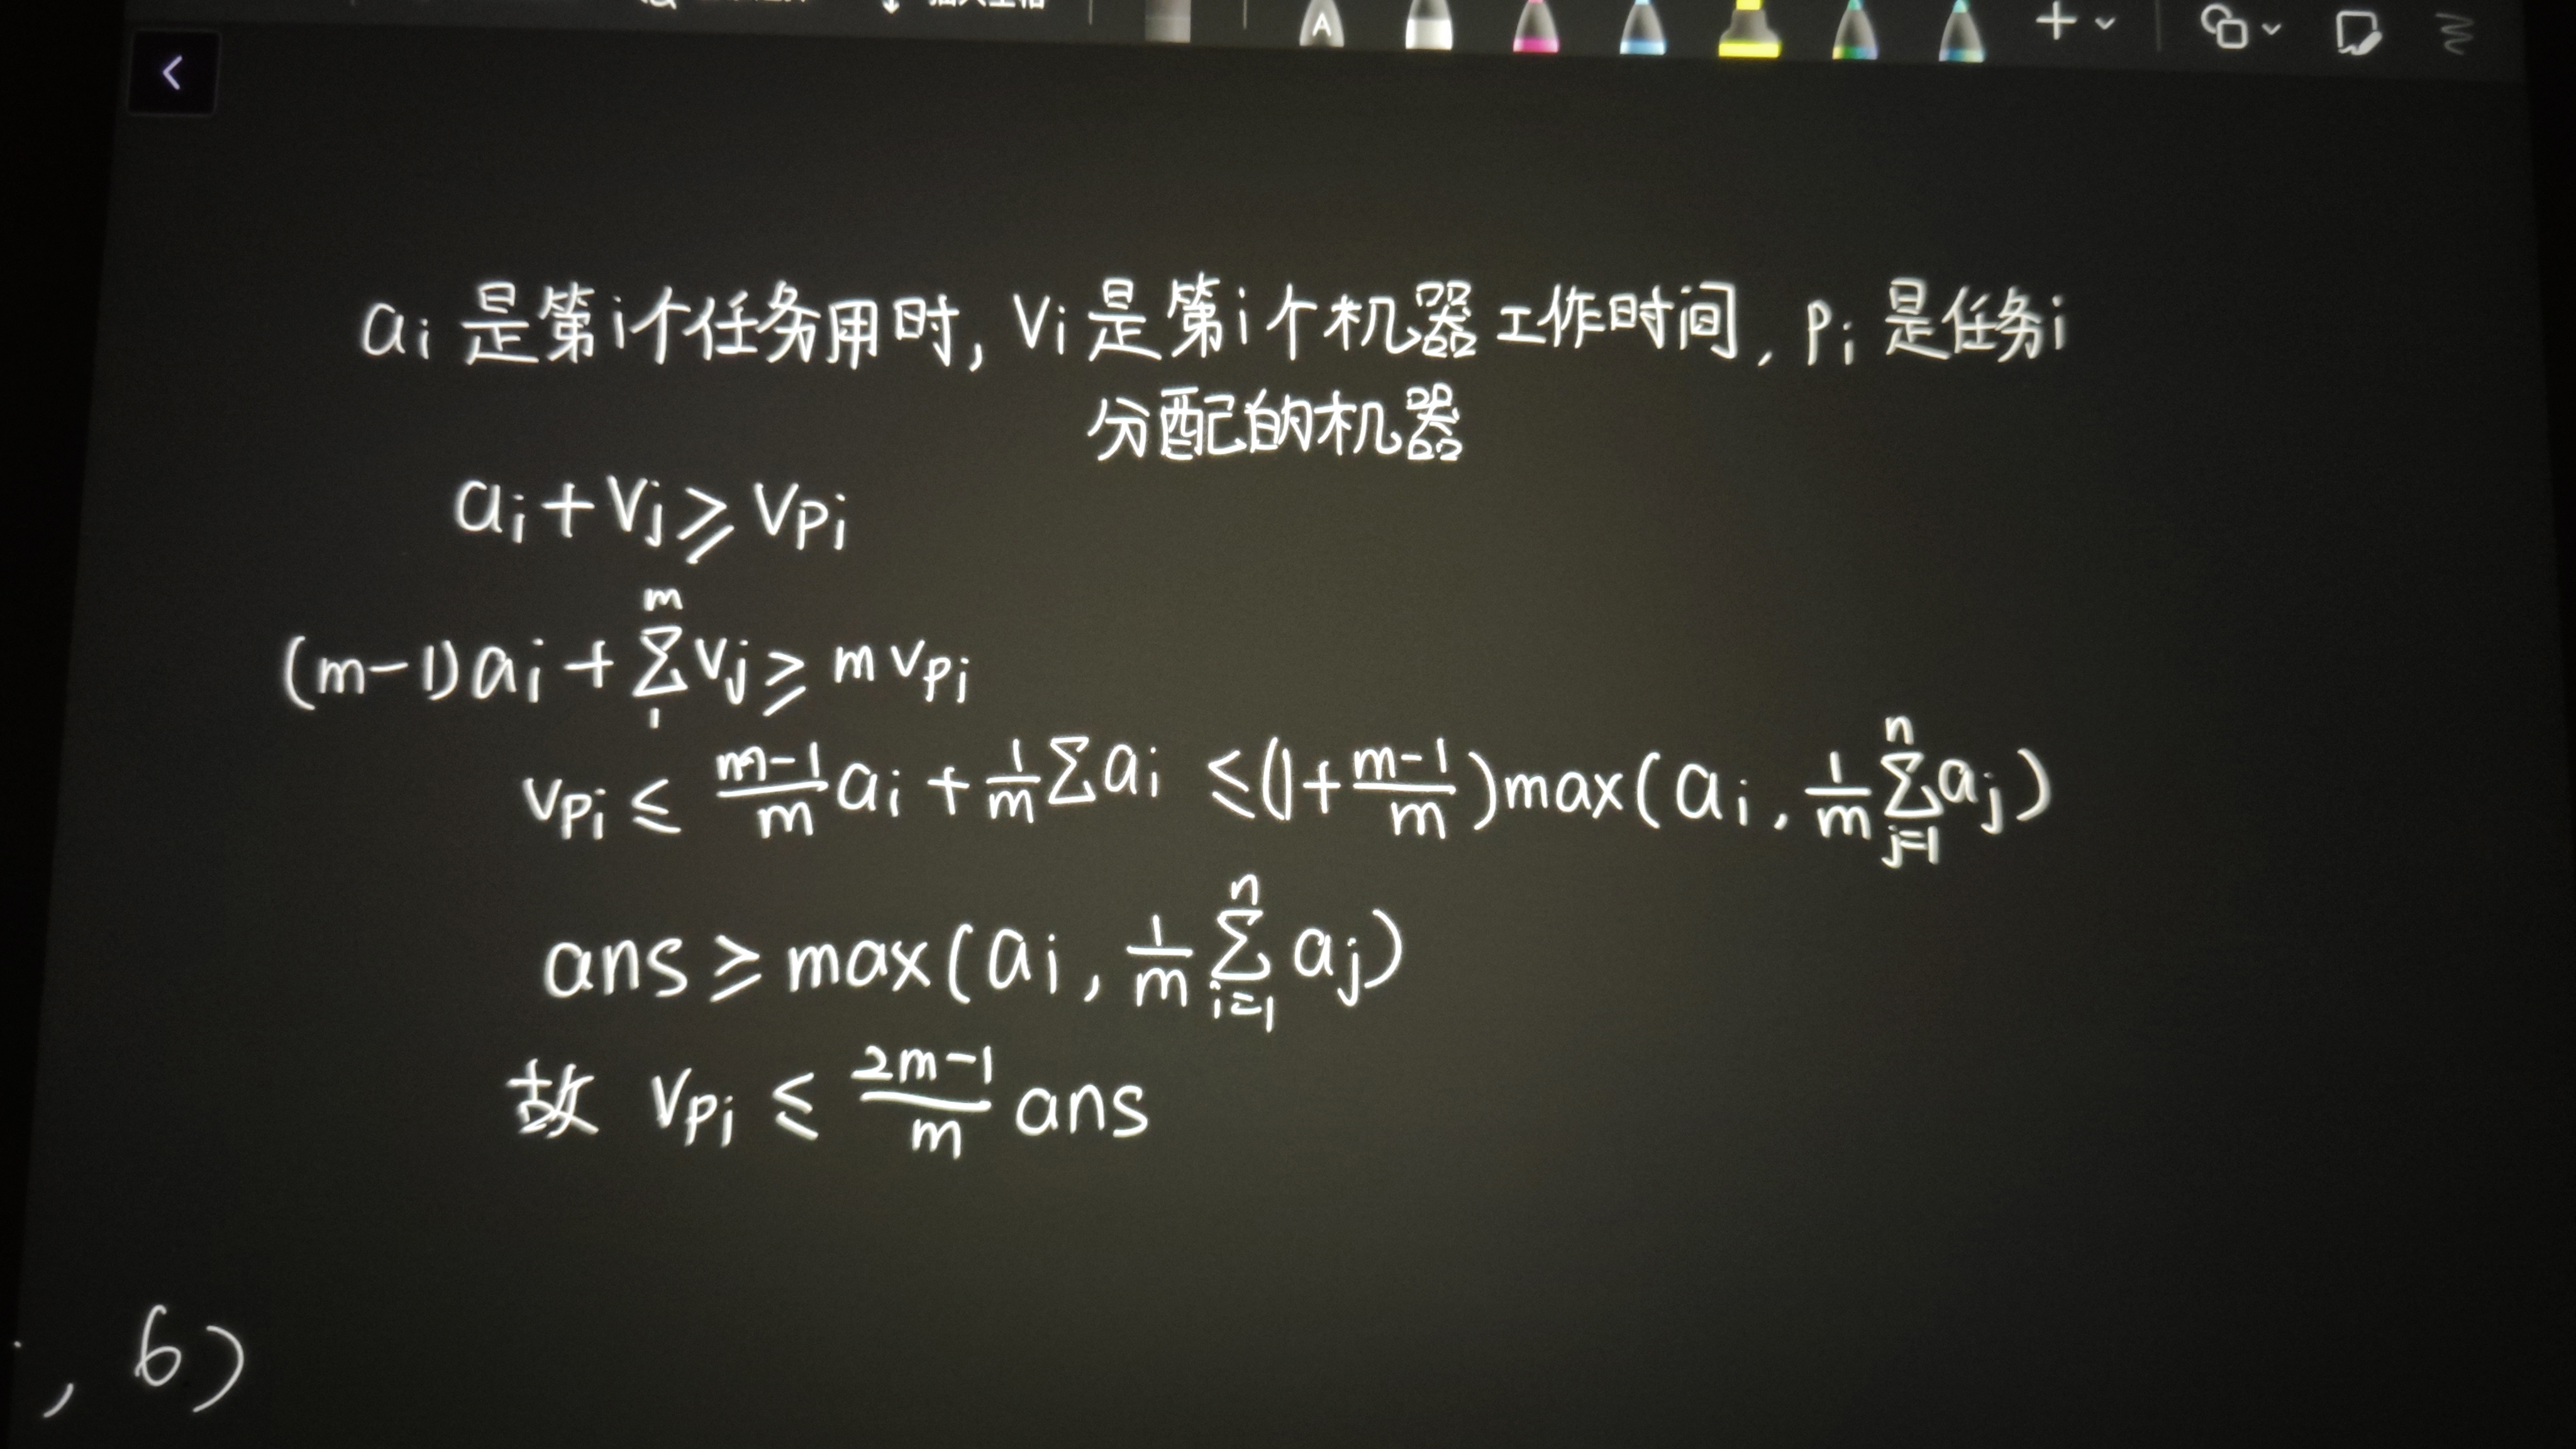 a_i 是第i个任务用时, v_i 是第i个机器工作时间, p_i 是任务i
分配的机器
a_i + v_j ≥ v_{p_i}
(m-1)a_i + \sum_{1}^{m} v_j ≥ m v_{p_i}
v_{p_i} ≤ \frac{m-1}{m} a_i + \frac{1}{m} \sum a_i ≤ (1 + \frac{m-1}{m}) max(a_i, \frac{1}{m} \sum_{j=1}^{n} a_j)
ans ≥ max(a_i, \frac{1}{m} \sum_{i=1}^{n} a_j)
故 v_{p_i} ≤ \frac{2m-1}{m} ans
, 6)